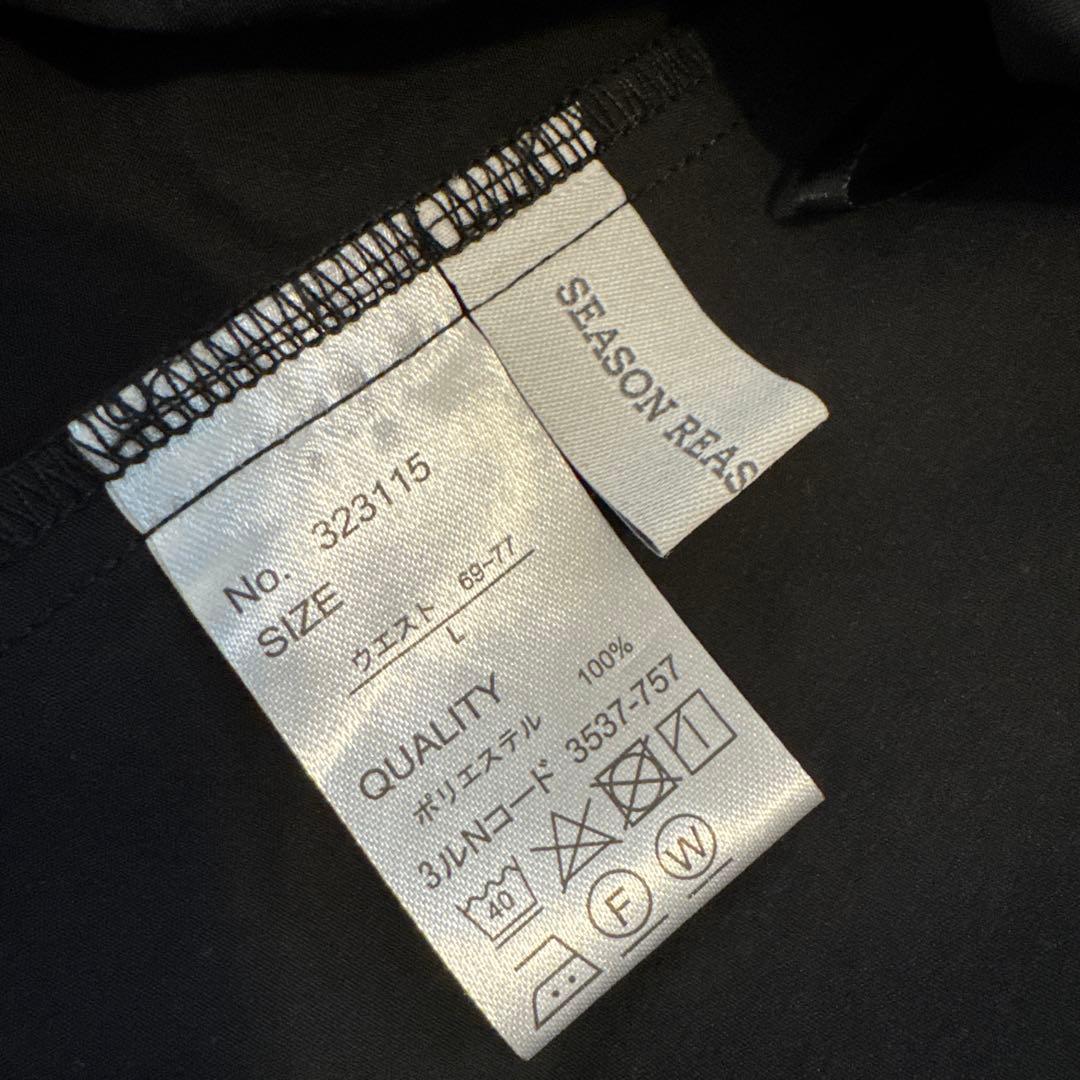 SEASON REAS
No. 323115
SIZE
ウエスト 69-77
L
QUALITY
ポリエステル 100%
3ルNコード 3537-757
40
F W